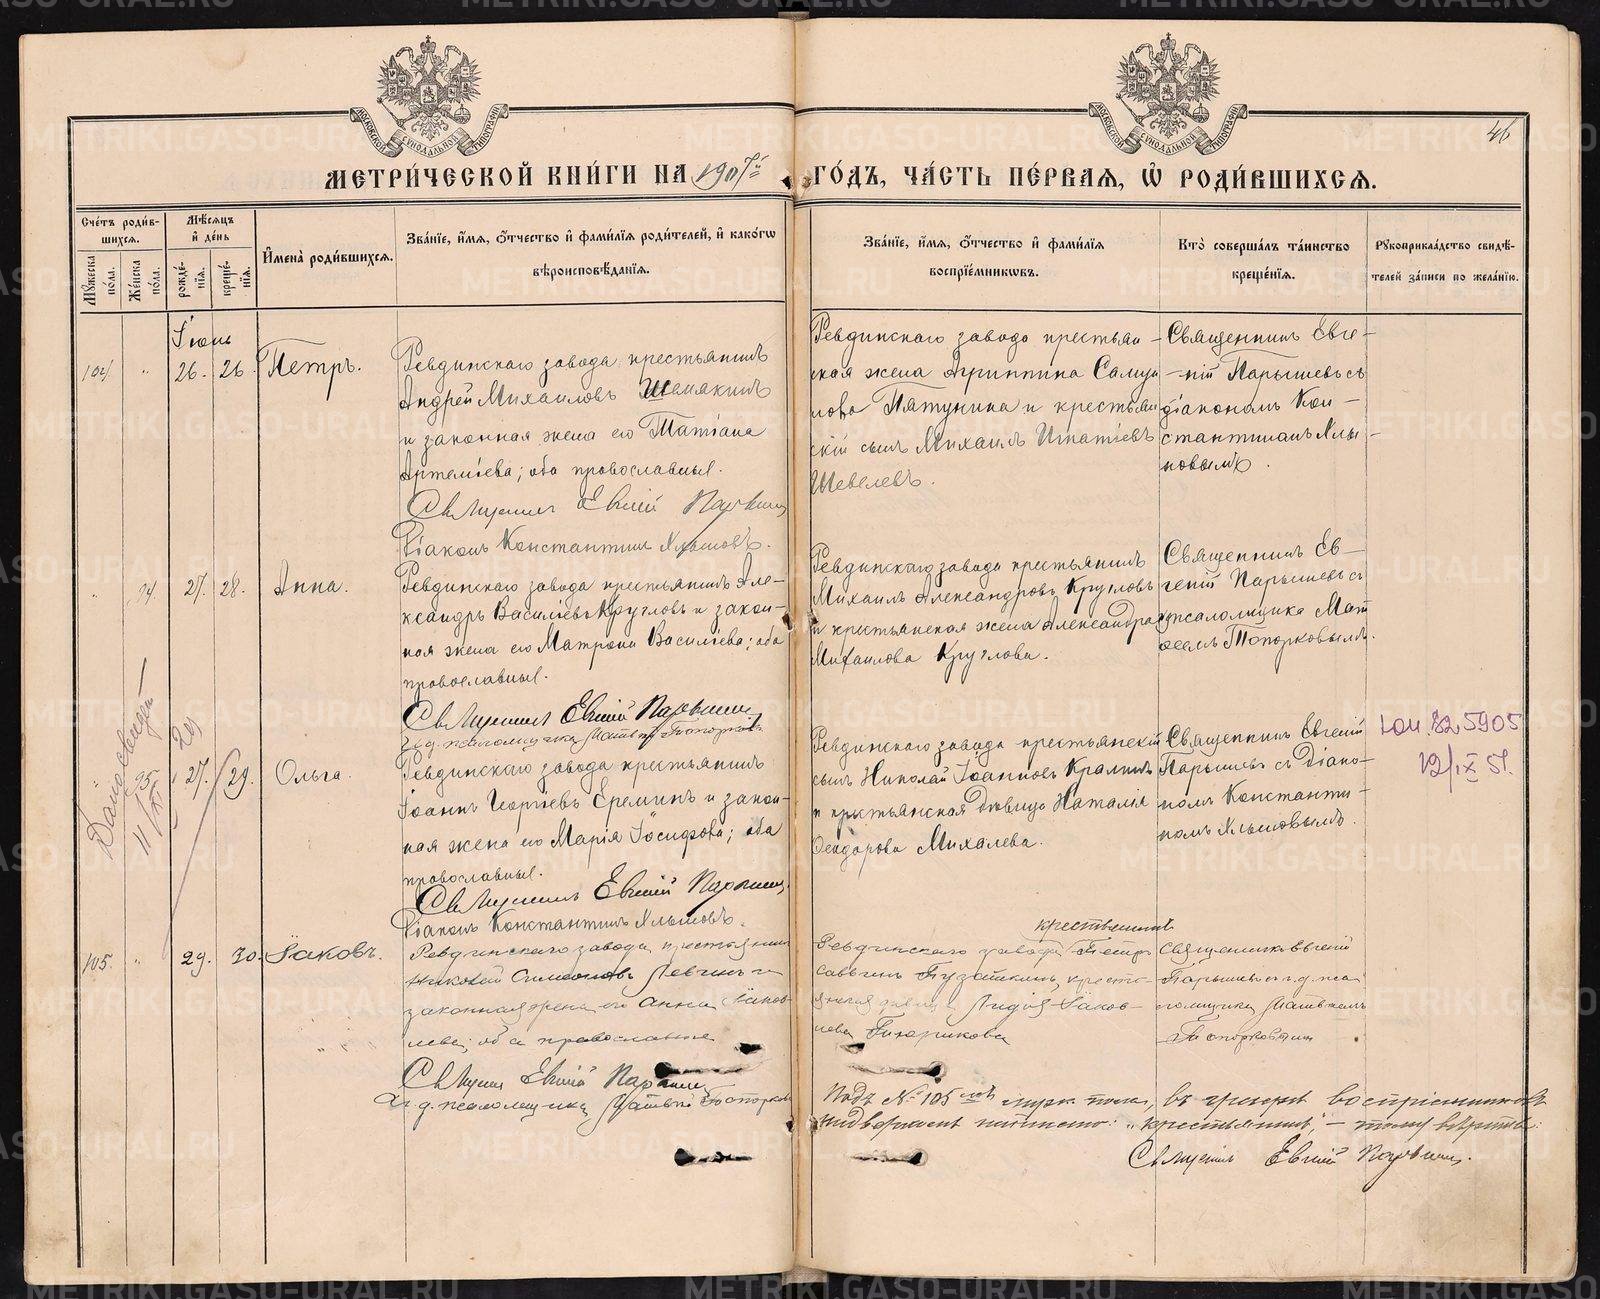 46
МЕТРИ́ЧЕСКОЙ КНИ́ГИ НА 1907й ГО́ДЪ, ЧА́СТЬ ПЕ́РВАЯ, Ѽ РОДИ́ВШИХСЯ.
Сче́тъ роди́в-
шихся.
Мѣ́сяцъ
и҆ де́нь
Му́жеска по́ла.
Же́нска по́ла.
рожде́нїя.
креще́нїя.
И҆мена̀ роди́вшихся.
Зва́нїе, и҆́мя, ѻ҆́тчество и҆ фами́лїя роди́телей, и҆ како́гѡ
вѣроисповѣ́данїя.
Зва́нїе, и҆́мя, ѻ҆́тчество и҆ фами́лїя
воспрїе́мникѡвъ.
Кто̀ соверша́лъ та́инство
креще́нїя.
Рукоприкла́дство свидѣ́-
телей за́писи по жела́нїю.
Іюнь
104. " 26. 26. Петръ.
Ревдинскаго завода крестьянинъ
Андрей Михаиловъ Шемякинъ
и законная жена его Татіана
Артеміева; оба православные.
Священникъ Евгеній Парышевъ
Діаконъ Константинъ Хлыновъ.
Ревдинскаго завода крестьян-
ская жена Агриппина Самуи
лова Пятунина и крестьян
скій сынъ Михаилъ Игнатіевъ
Шевелевъ.
Священникъ Евге-
-ній Парышевъ съ
діакономъ Кон-
стантиномъ Хлы-
новымъ.
" 94. 27. 28. Анна.
Ревдинскаго завода крестьянинъ Але-
ксандръ Василіевъ Кругловъ и закон-
ная жена его Матрона Василіева; оба
православные.
Священникъ Евгеній Парышевъ
и. д. псаломщика Матвѣй Топорковъ
Ревдинскаго завода крестьянинъ
Михаилъ Александровъ Кругловъ
и крестьянская жена Александра
Михаилова Круглова.
Священникъ Ев-
геній Парышевъ съ
псаломщика Мат
ѳеемъ Топорковымъ.
" 95. 27. 29. Ольга.
Ревдинскаго завода крестьянинъ
Іоаннъ Георгіевъ Ереминъ и закон-
ная жена его Марія Іосифова; оба
православные.
Священникъ Евгеній Парышевъ
Діаконъ Константинъ Хлыновъ.
Ревдинскаго завода крестьянскій
сынъ Николай Іоанновъ Кралинъ
и крестьянская дѣвица Наталія
Ѳеодорова Михалева.
Священникъ Евгеній
Парышевъ съ діако-
номъ Константи-
номъ Хлыновымъ.
825905
12/IX 57.
105. " 29. 30. Іаковъ.
Ревдинскаго завода крестьянинъ
Николай Симеоновъ Левинъ и
законная жена его Анна Іаков-
лева; оба православные
Священникъ Евгеній Парышевъ
и. д. псаломщика Матвѣй Топорковъ
крестьянинъ
Ревдинскаго завода Петръ
Саввинъ Пузаткинъ, кресть-
янская дѣвица Лидія Іаков-
лева
Священникъ Евгеній
Парышевъ съ и. д. пса-
ломщика Матвѣемъ
Топорковымъ
Подъ № 105 муж. пола, въ графѣ воспріемниковъ
надписано: "крестьянинъ", – тому вѣрить.
Священникъ Евгеній Парышевъ.